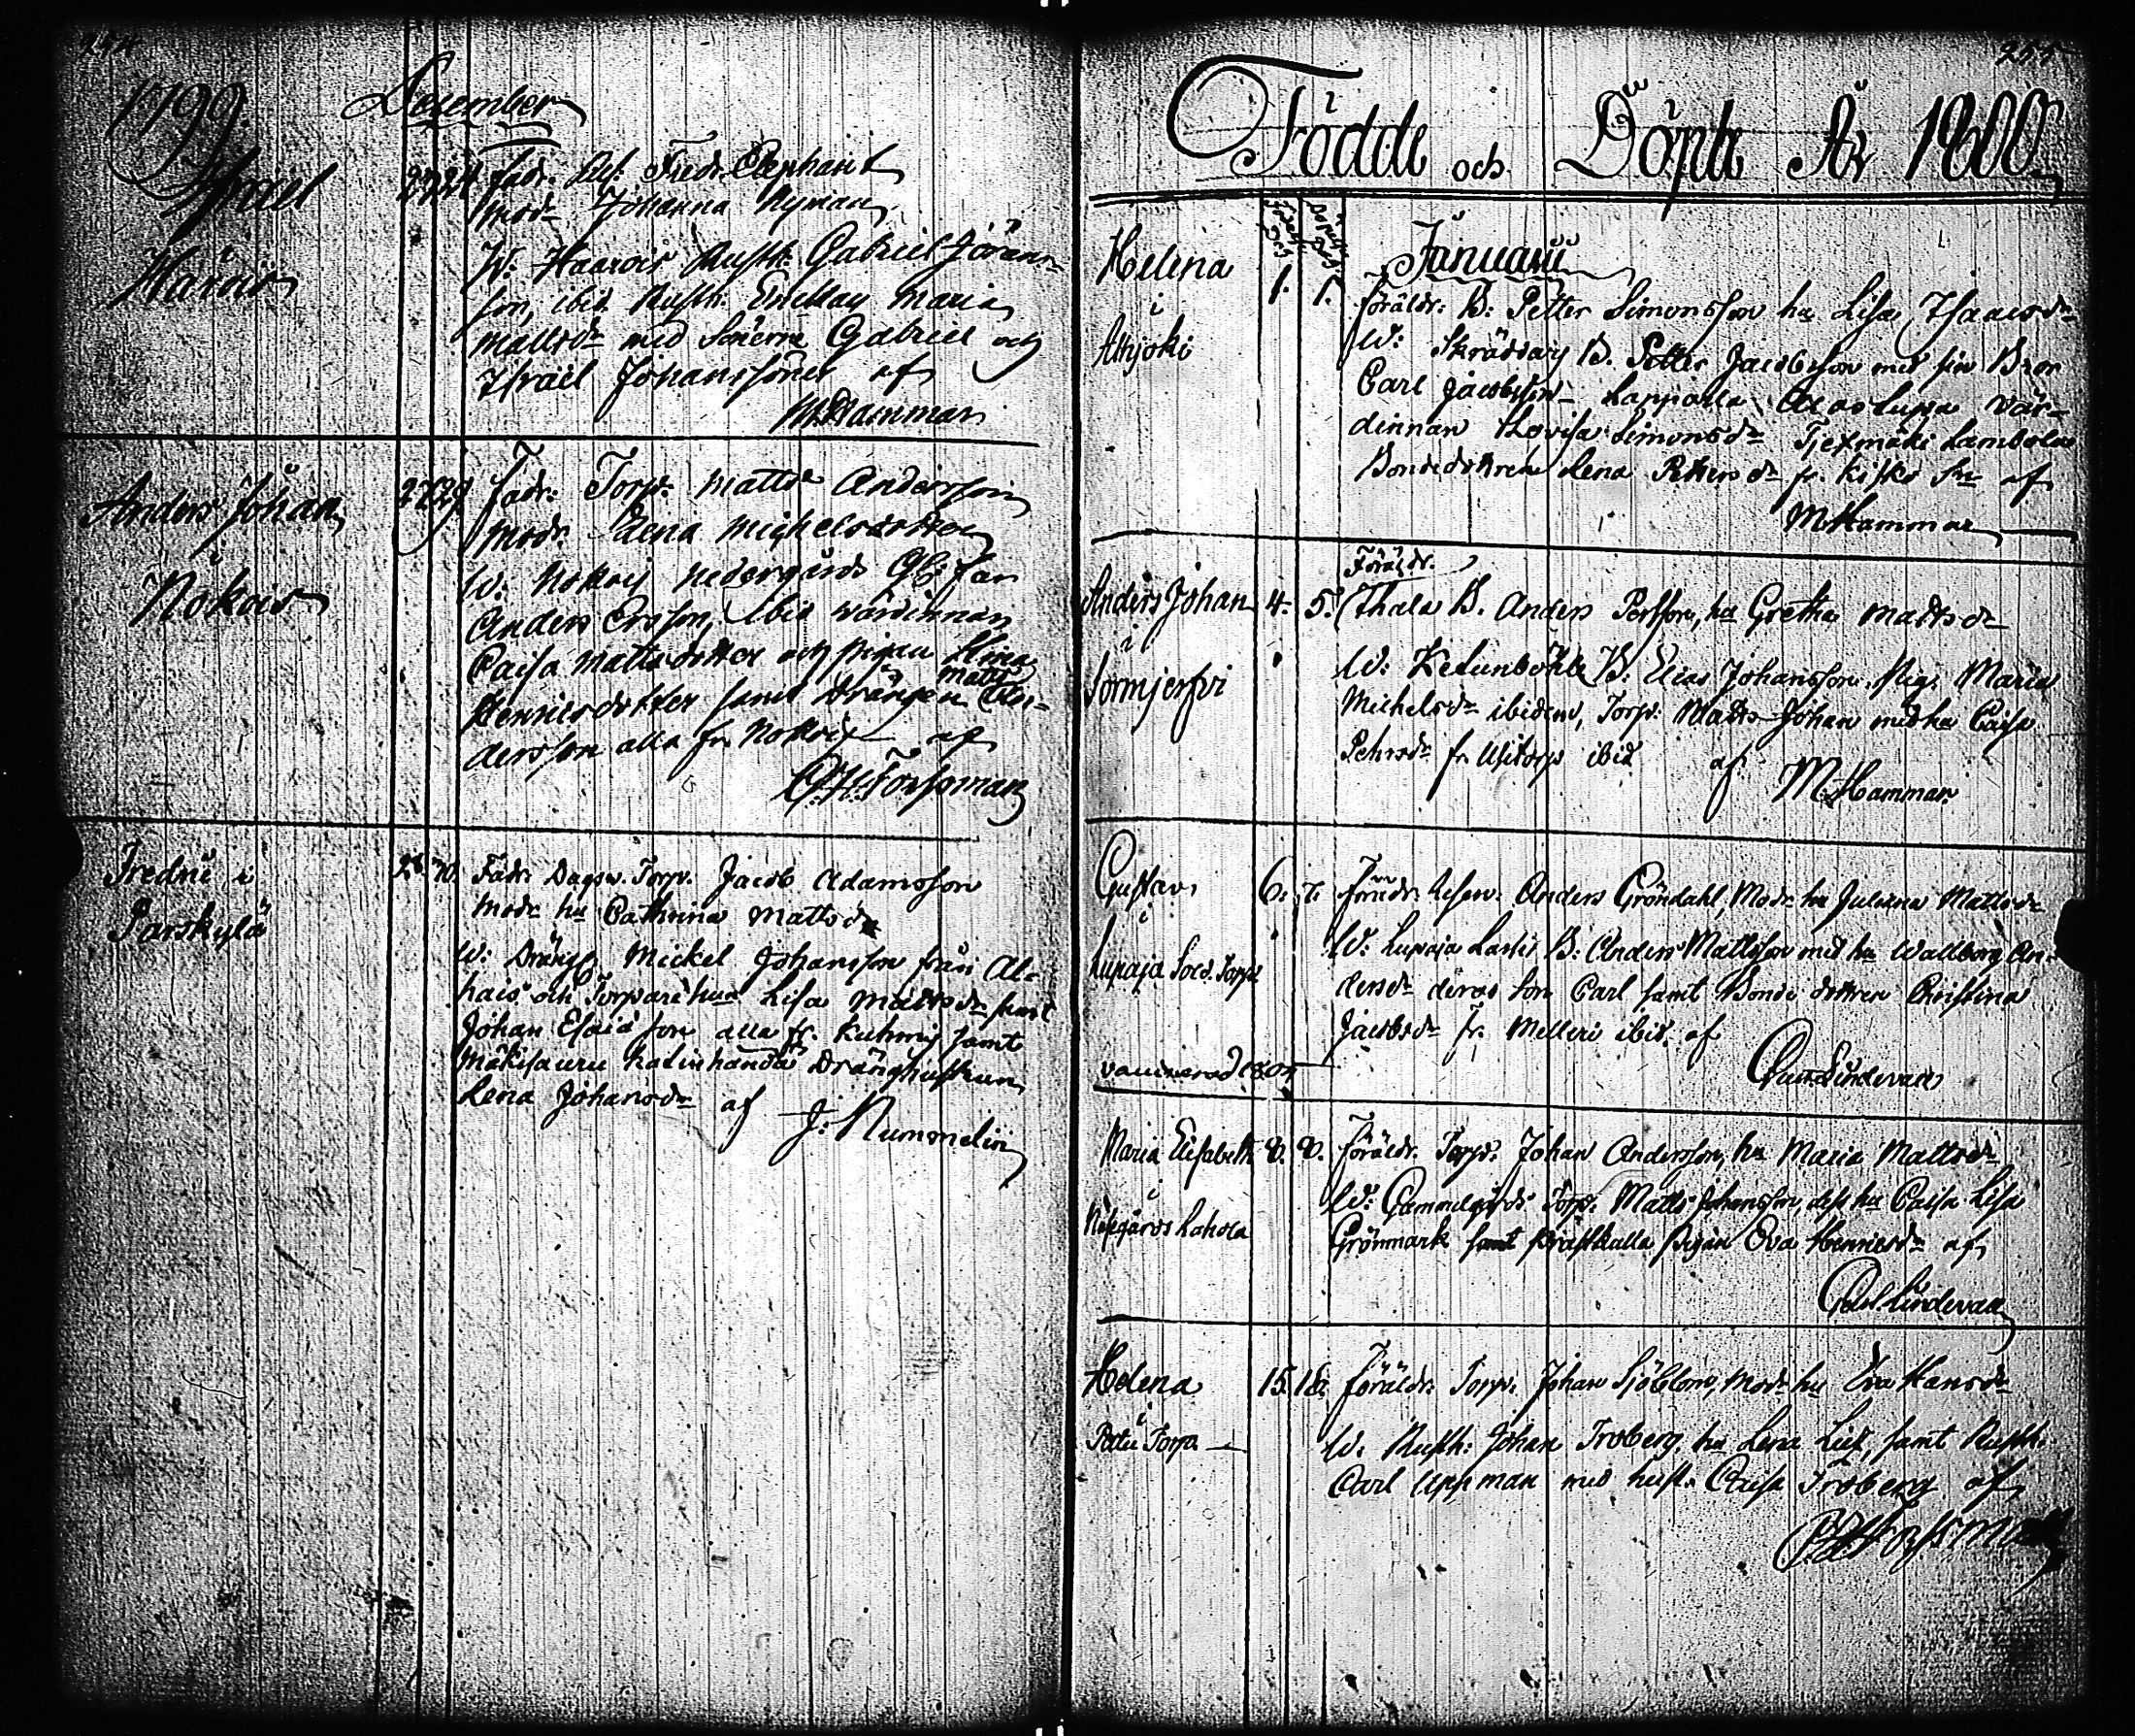 254
1799.
December
Israel
Harvis
Fadr. Fredr. Elephant
Modr Johanna Nyman
W: Haarois Rusth: Gabriel Jörans-
son, ibid. Rusth: Enkkan Maria
Mattsdr med Sönerne Gabriel och
Israel Johanssöner af
M. Hammar
Anders Johan
i
Nokois
27 29
Fadr: Torp. Matts Andersson
Modr. Lena Michelsdotter
W: Nokois nedergårds Gb: far
Anders Ersson, ibid värdinnan
Caisa Mattsdotter och pigan Stina
Henricsdotter samt Drängen Matts An-
dersson alla fr. Nokois af
C. H. Forssman
Fredric i
Parskylä
28. 30.
Fadr. Dagsv. Torp. Jacob Adamsson
Modr hu Cathrina Mattsdr
W: Dräng Mickel Johansson från Al-
hais och Torpare hu Lisa Mattsdr samt
Johan Esaias son alla fr. Kuhmis samt
Mäkisauru Dränghustrun
Lena Johansdr af J: Nummelin
255
Födde och Döpte År 1800.
Januarii
Helena
i
Ahnjoki
1. 1.
Föräldr: B: Petter Simonsson hu Lisa Isaacsdr
W: Skräddary B. Petter Jacobsson med sin Bror
Carl Jacobsson Lappalla vär-
dinnan Lovisa Simonsdr Tjetmäki Lambola
Bondedottren Lena Pettersdr fr. Kisko Sn af
M. Hammar
Föräldr.
Anders Johan
i
Sormjerfvi
4. 5.
Ithala B. Anders Persson, hu Gretha Mattsdr
W: Ketunböhle B. Elias Johansson. Pig. Maria
Michelsdr ibidem, Torp: Matts Johan med hu Caisa
Pehrsdr fr. Nitorp ibid af M. Hammar
Gustav
i
Lupaja Sold. Torp
6. 7.
Fadr. Anders Gröndahl, Modr hu Juliana Mattsdr
W: Lupaja Lassis B: Anders Mattsson med hu Wallborg An-
dersdr deras son Carl samt Bonde dottren Christina
Jacobsdr fr. Melleri ibid. af
Lindevall
vaccinerad 1804
Maria Elisabeth
i
Näsegårds Lahola
8. 8.
Föräldr. Torp: Johan Andersson, hu Maria Mattsdr
W: Gammelgårds Torp: Matts Johansson, dess hu Caisa Lisa
Grönmark samt Prästkulla pigan Eva Henricsdr af
Lindevall
Helena
i
Pettu Torp
15. 18.
Föräldr. Torp. Johan Sjöblom, Modr hu Eva Hansdr
W: Rusth: Johan Troberg hu Lena Lietz, samt Rusth:
Carl Uppman med hust. Caisa Troberg af
C. H. Forssman